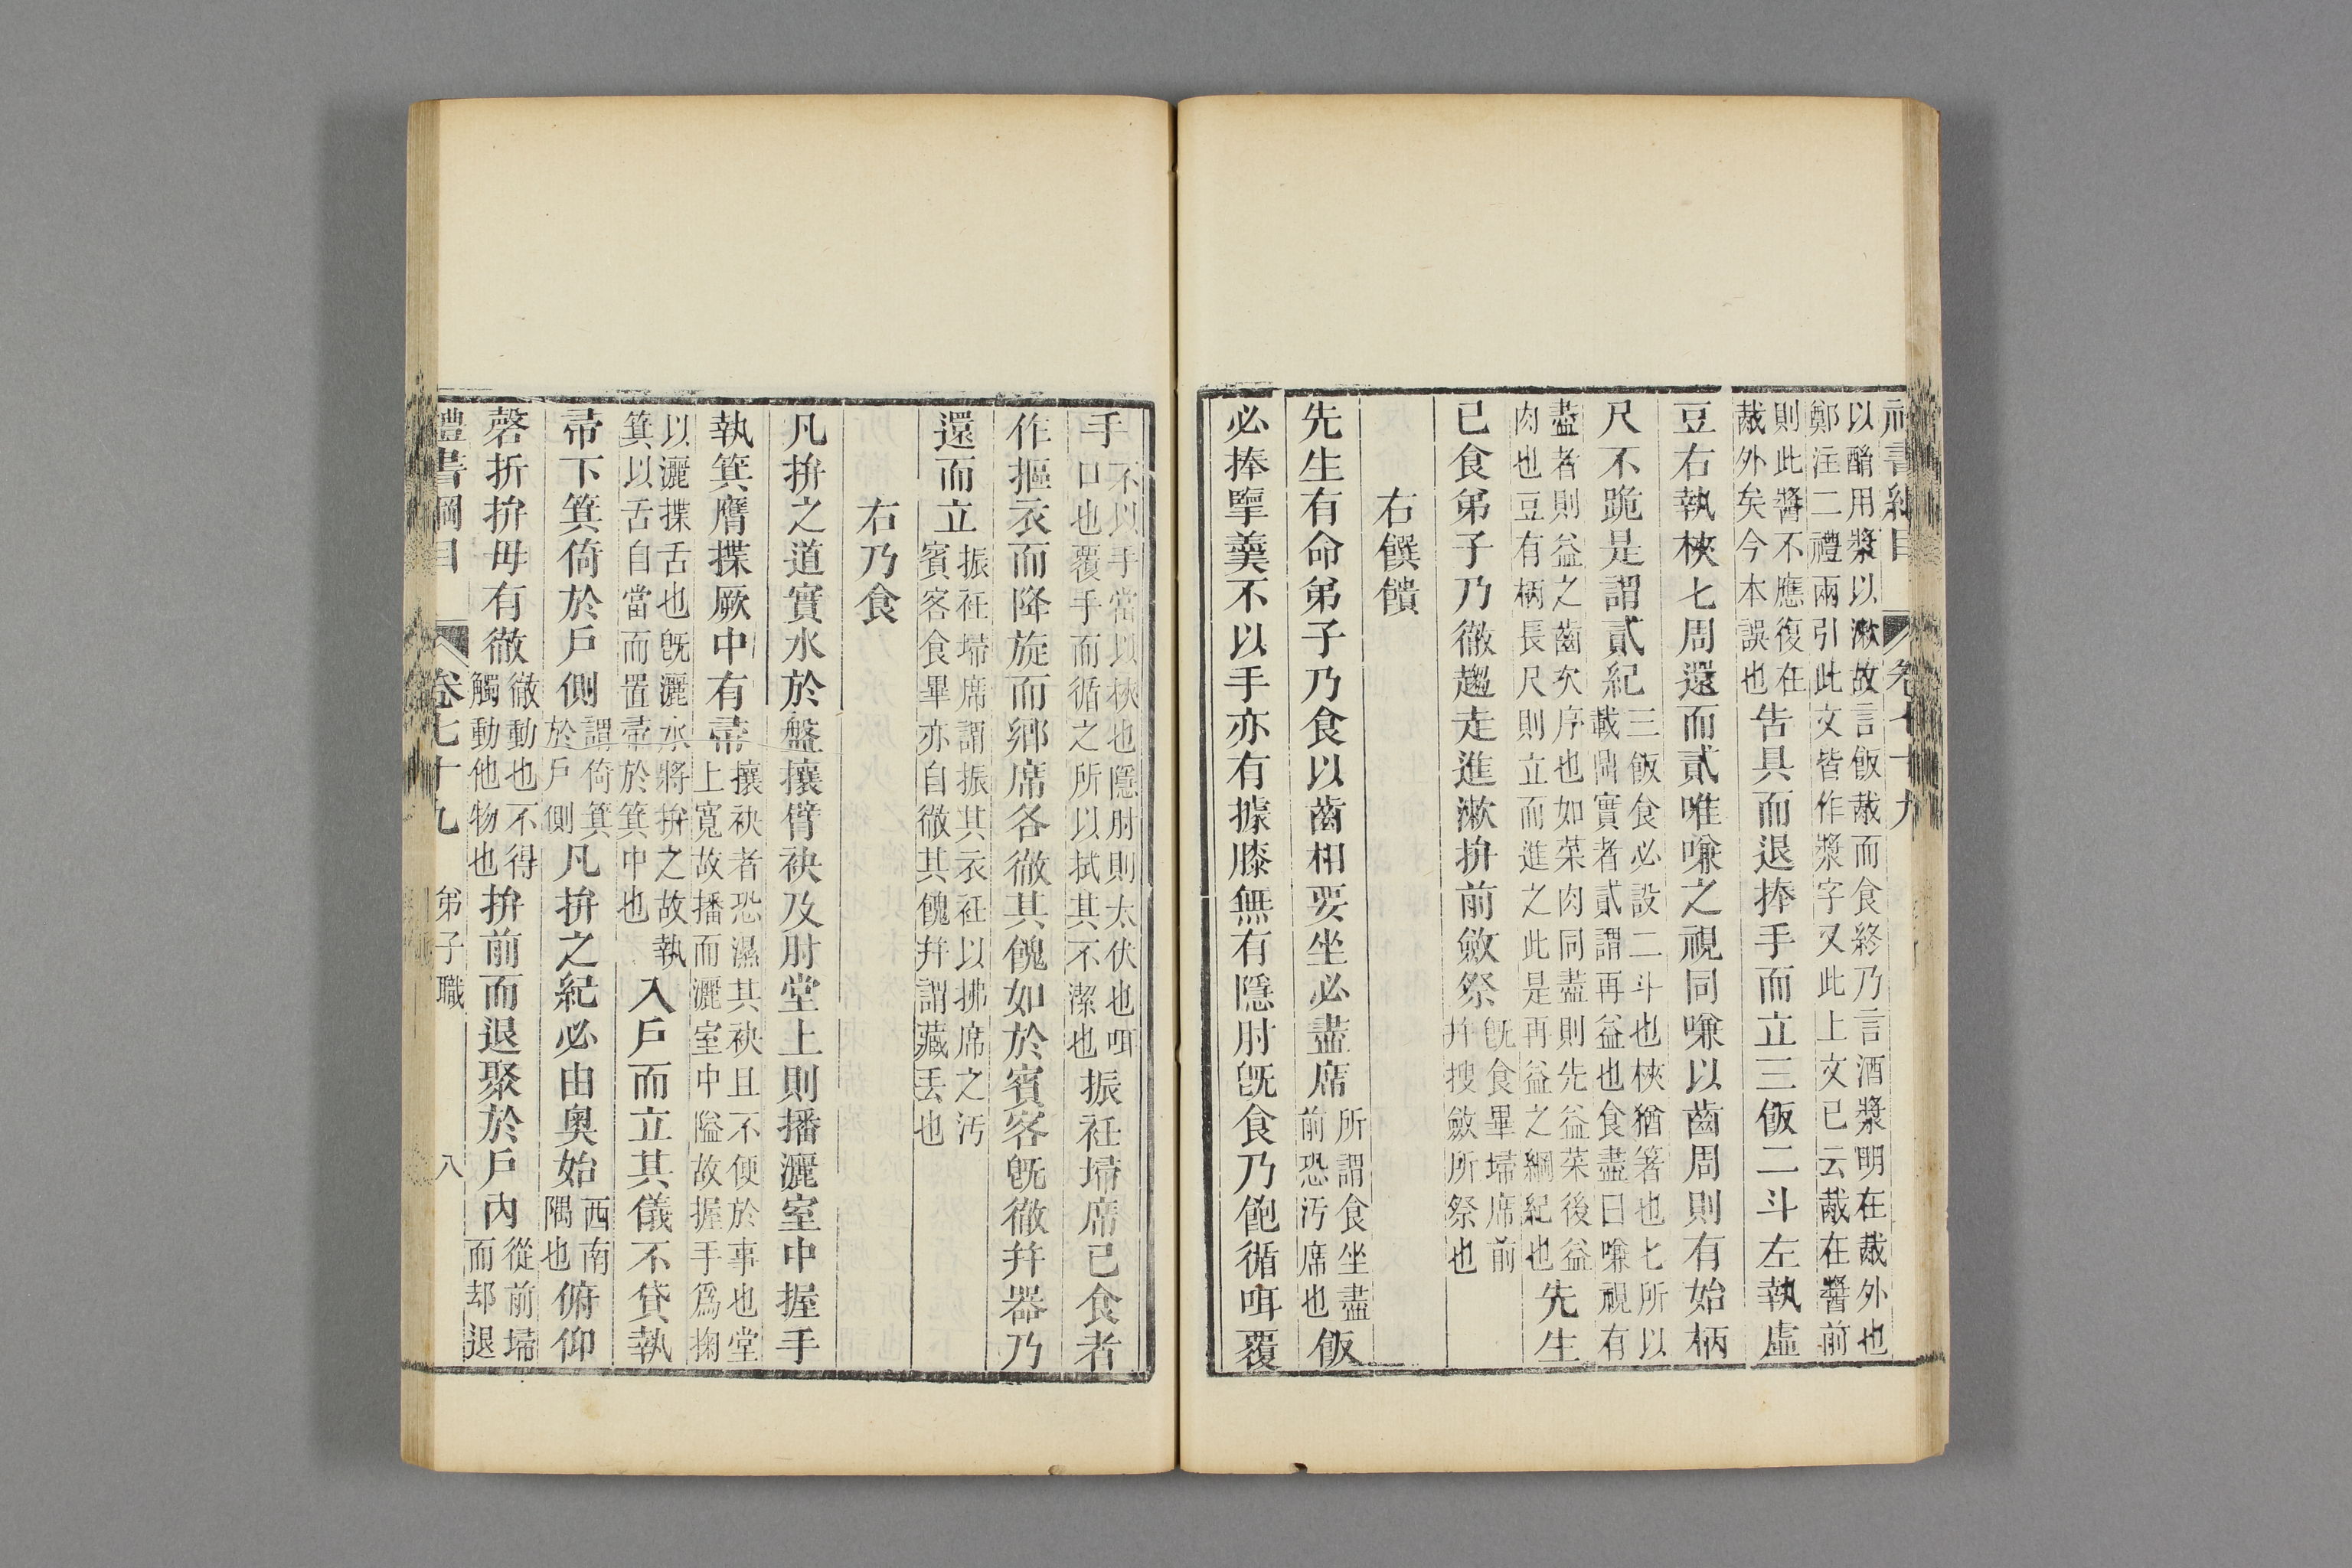 禮書綱目 卷七十九
以酳用漿以漱故言飯胾而食終乃言酒漿明在胾外也
鄭注二禮兩引此文皆作漿字又此上文已云胾在醬前
則此醬不應復在胾外矣今本誤也告具而退捧手而立三飯二斗左執虛
豆右執梜匕周還而貳唯嗛之視同嗛以齒周則有始柄
尺不跪是謂貳紀三飯食必設二斗也梜猶箸也匕所以載鼎實者貳謂再益也食盡曰嗛視有
盡者則益之齒次序也如菜肉同盡則先益菜後益肉也豆有柄長尺則立而進之此是再益之綱紀也先生
已食弟子乃徹趨走進漱拚前斂祭旣食畢埽席前幷搜斂所祭也
右饌饋
先生有命弟子乃食以齒相要坐必盡席所謂食坐盡前恐汚席也飯
必捧擥羹不以手亦有據膝無有隱肘旣食乃飽循咡覆
手不以手當以梜也隱肘則太伏也咡口也覆手而循之所以拭其不潔也振衽埽席已食者
作摳衣而降旋而鄉席各徹其餽如於賓客旣徹幷器乃
還而立振衽埽席謂振其衣衽以拂席之汚賓客食畢亦自徹其餽幷謂藏去也
右乃食
凡拚之道實水於盤攘臂袂及肘堂上則播灑室中握手
執箕膺揲厥中有帚攘袂者恐濕其袂且不便於事也堂上寬故播而灑室中隘故握手爲掬
以灑揲舌也旣灑水將拚之故執箕以舌自當而置帚於箕中也入戶而立其儀不貸執
帚下箕倚於戶側謂倚箕於戶側凡拚之紀必由奧始西南隅也俯仰
磬折拚毋有徹徹動也不得觸動他物也拚前而退聚於戶內從前埽而却退
禮書綱目 卷七十九 弟子職 八